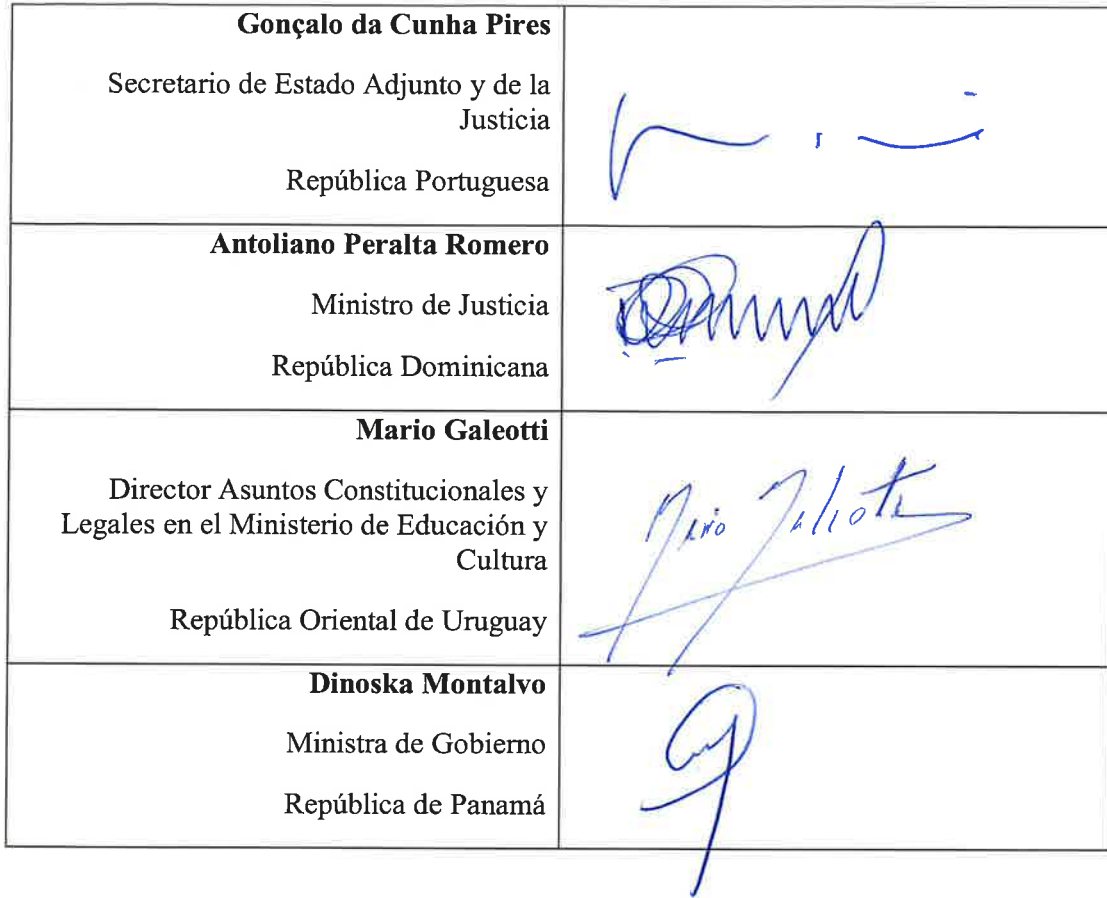 Gonçalo da Cunha Pires
Secretario de Estado Adjunto y de la
Justicia
República Portuguesa
Antoliano Peralta Romero
Ministro de Justicia
República Dominicana
Mario Galeotti
Director Asuntos Constitucionales y
Legales en el Ministerio de Educación y
Cultura
República Oriental de Uruguay
Dinoska Montalvo
Ministra de Gobierno
República de Panamá